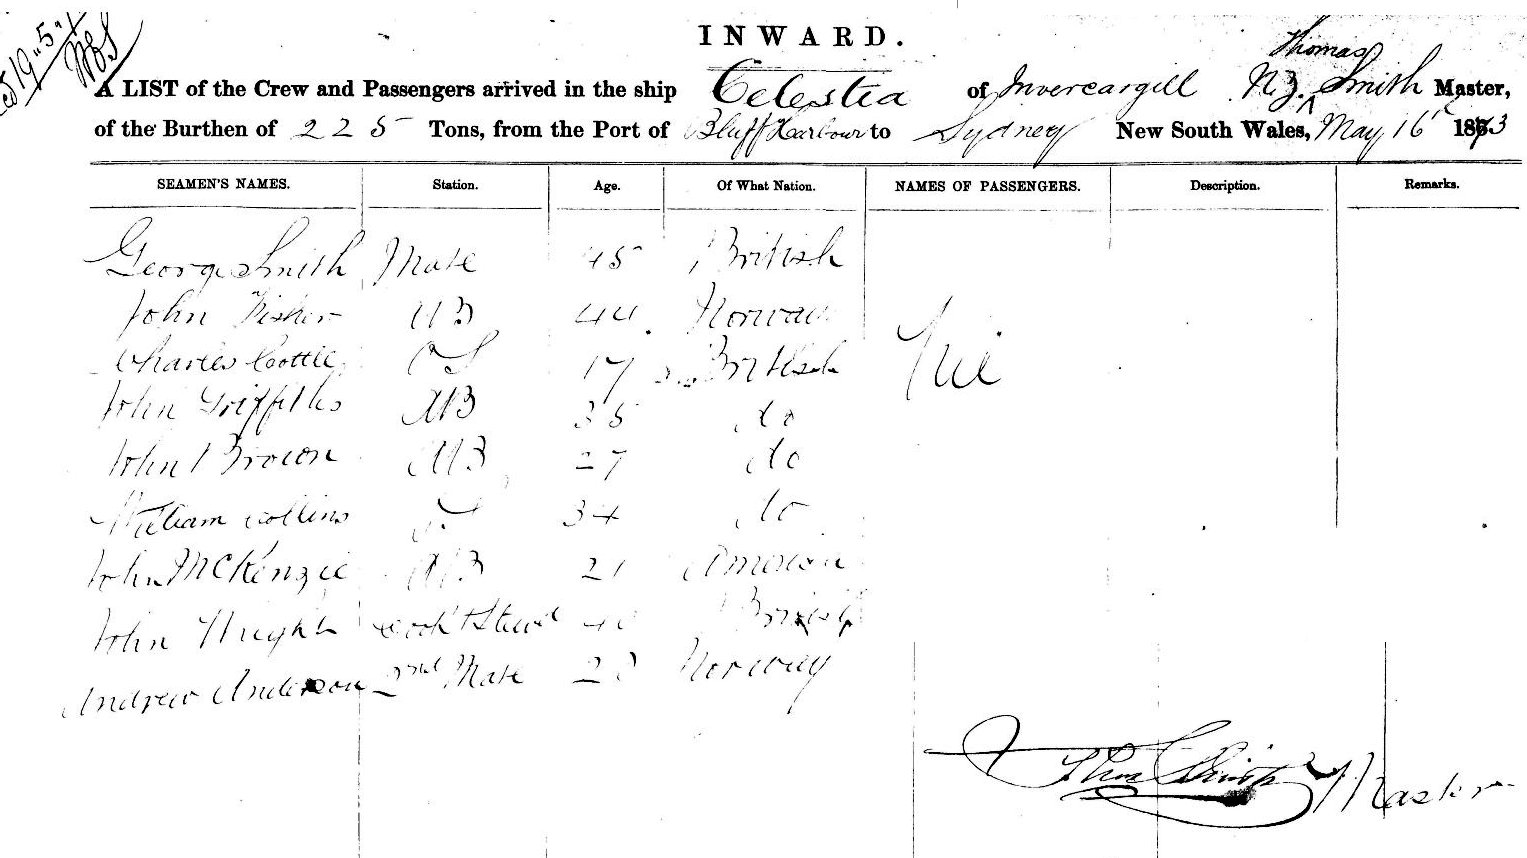 INWARD.
A LIST of the Crew and Passengers arrived in the ship Celestia of Invercargill N Z. Thomas Smith Master,
of the Burthen of 225 Tons, from the Port of Bluff Harbour to Sydney New South Wales, May 16 1873
SEAMEN'S NAMES. Station. Age. Of What Nation. NAMES OF PASSENGERS. Description. Remarks.
George Smith Mate 45 British
John Fisher AB 44 Norway
Charles Cottle OS 17 British Nil
John Griffiths AB 35 do
John Brown AB 27 do
William Collins 34 do
John McKenzie AB 21 American
John Wright Cook & Steward British
Andrew Anderson 2nd Mate Norway
Thos Smith Master